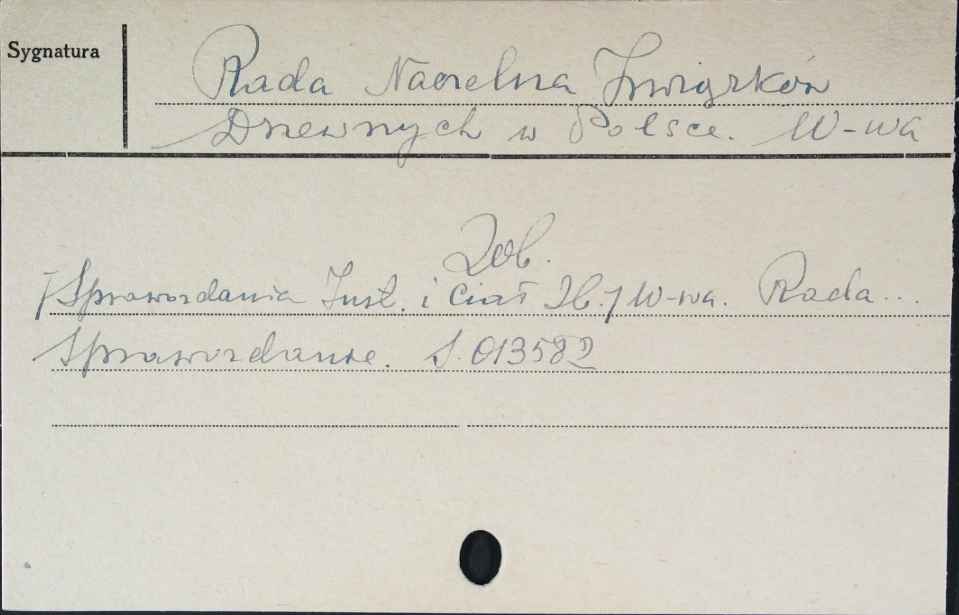 Sygnatura
Rada Naczelna Związków
Drzewnych w Polsce. W-wa
Zob.
/Sprawozdania Inst. i Ciał Zb./ W-wa. Rada...
Sprawozdanie. S. 013582